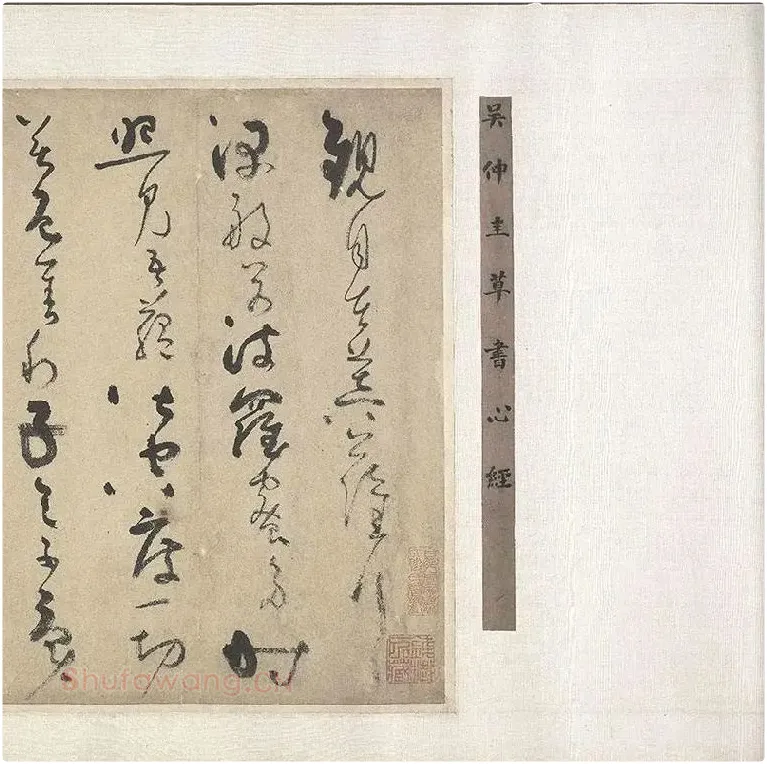 吳仲圭草書心經
觀自在菩薩行
深般若波羅蜜多時
照見五蘊皆空度一切
苦厄舍利子色不異
Shufawang.cn